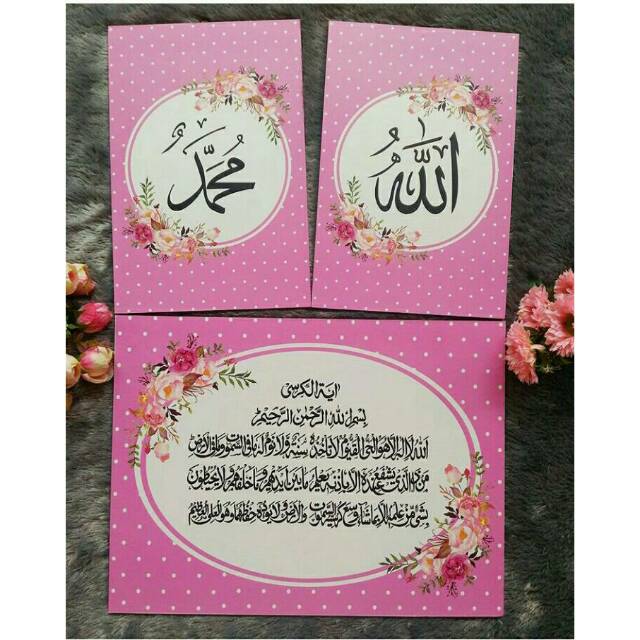 الله
محمد
اية الكرسى
بسم الله الرحمن الرحيم
الله لا اله الا هو الحي القيوم لا تاخذه سنة ولا نوم له ما في السموت وما في الارض
من ذا الذي يشفع عنده الا باذنه يعلم ما بين ايديهم وما خلفهم ولا يحيطون
بشيء من علمه الا بما شاء وسع كرسيه السموت والارض ولا يوده حفظهما وهو العلي العظيم